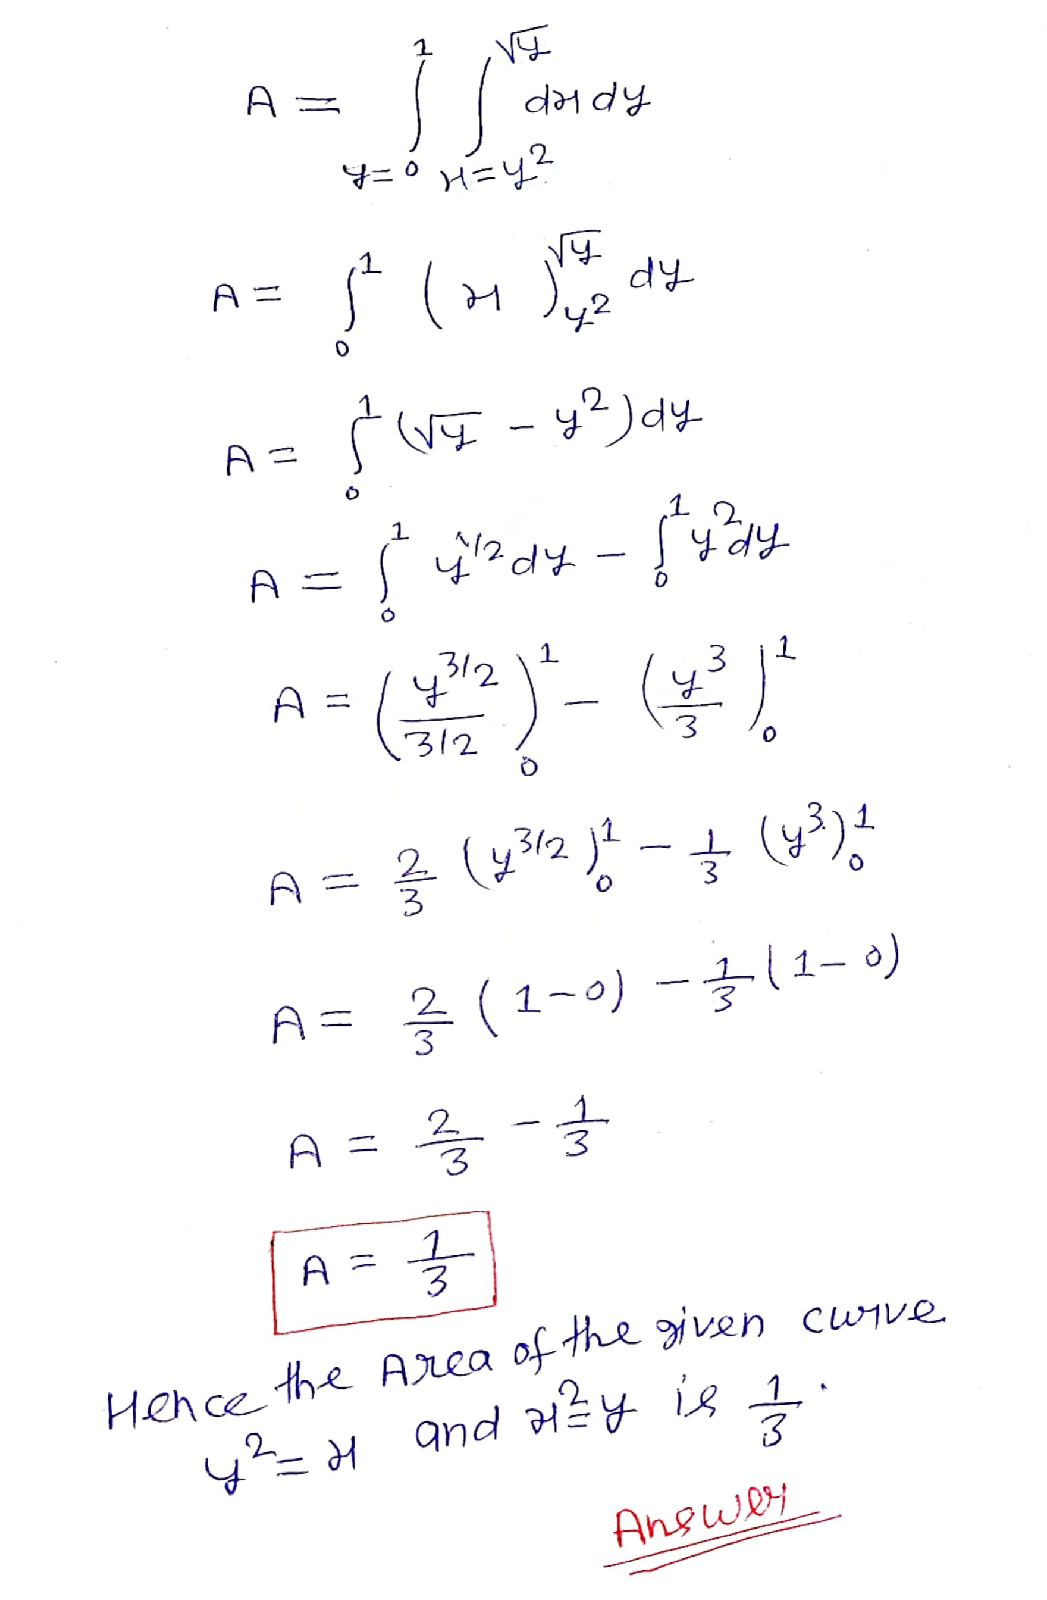 A = ∫_{y=0}^{1} ∫_{x=y²}^{√y} dx dy
A = ∫_0^1 (x)_{y²}^{√y} dy
A = ∫_0^1 (√y - y²) dy
A = ∫_0^1 y^{1/2} dy - ∫_0^1 y² dy
A = (y^{3/2} / 3/2)_0^1 - (y³/3)_0^1
A = 2/3 (y^{3/2})_0^1 - 1/3 (y³)_0^1
A = 2/3 (1-0) - 1/3 (1-0)
A = 2/3 - 1/3
A = 1/3
Hence the Area of the given curve
y² = x and x² = y is 1/3.
Answer